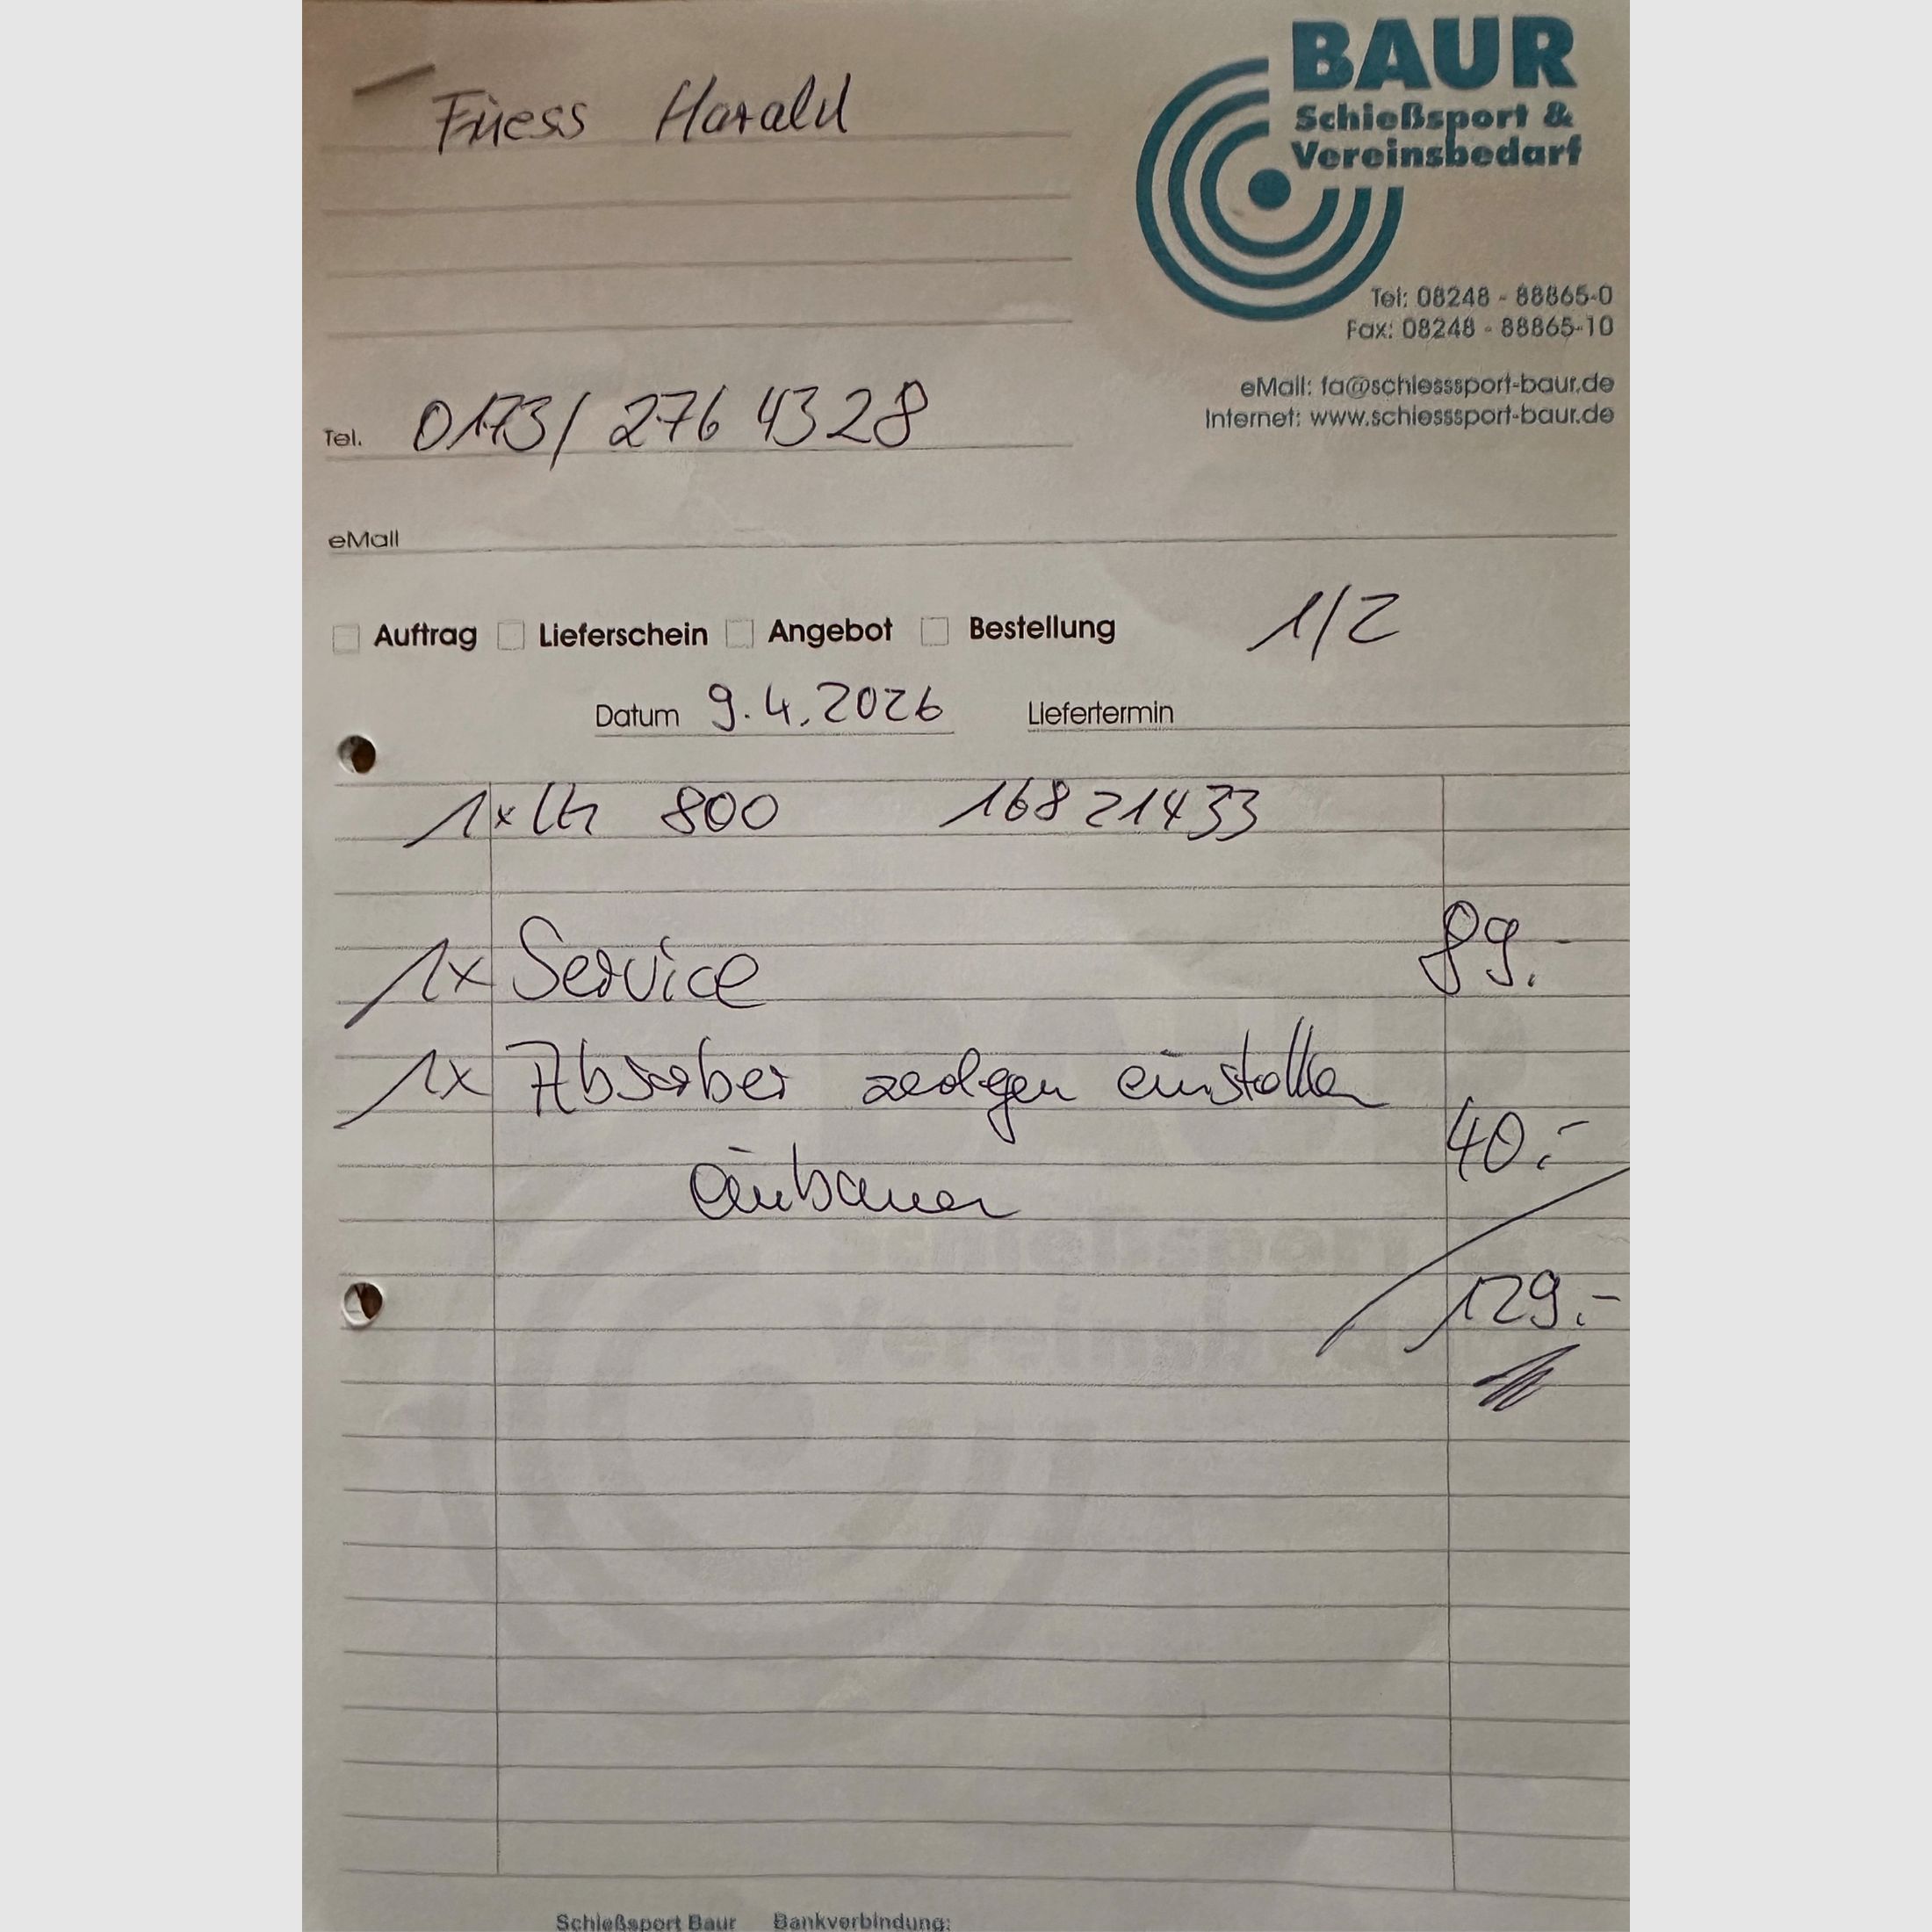 Fuess Harald
BAUR
Schießsport &
Vereinsbedarf
Tel: 08248 - 88865-0
Fax: 08248 - 88865-10
eMail: fa@schiesssport-baur.de
Internet: www.schiesssport-baur.de
Tel. 0173/ 276 4328
eMail
Auftrag Lieferschein Angebot Bestellung 1/2
Datum 9.4.2026 Liefertermin
1x LG 800 16821433
1x Service 89.-
1x Absorber zerlegen einstellen
40.-
einbauen
129.-
Schießsport Baur Bankverbindung: